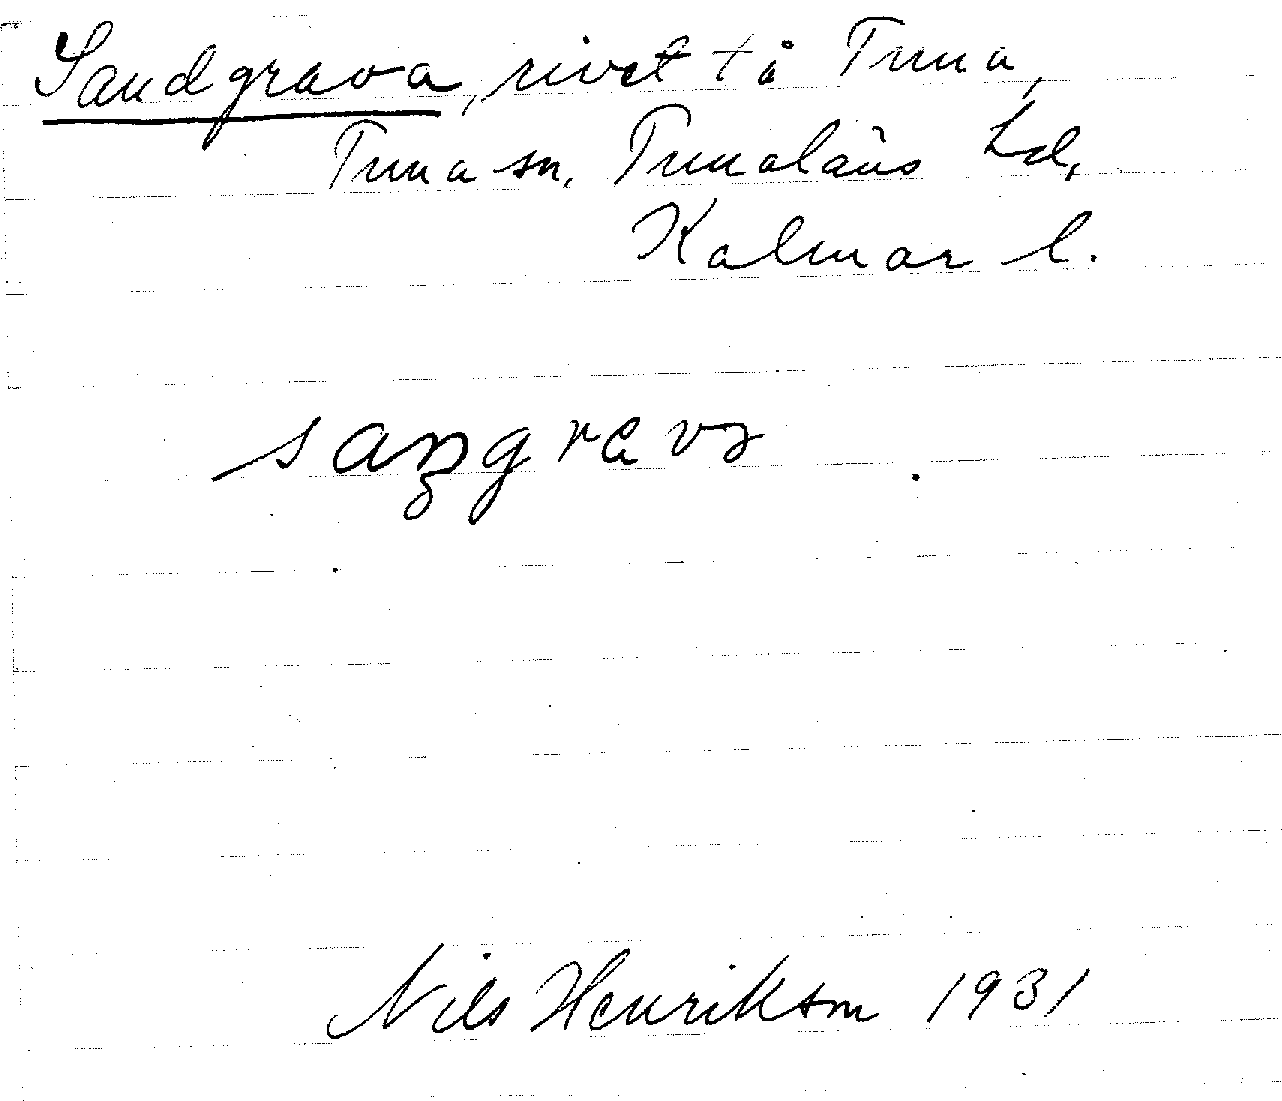 Sandgrava, rivet t å Tuna,
Tuna sn, Tunaläns hd,
Kalmar l.
Nils Henrikson 1931